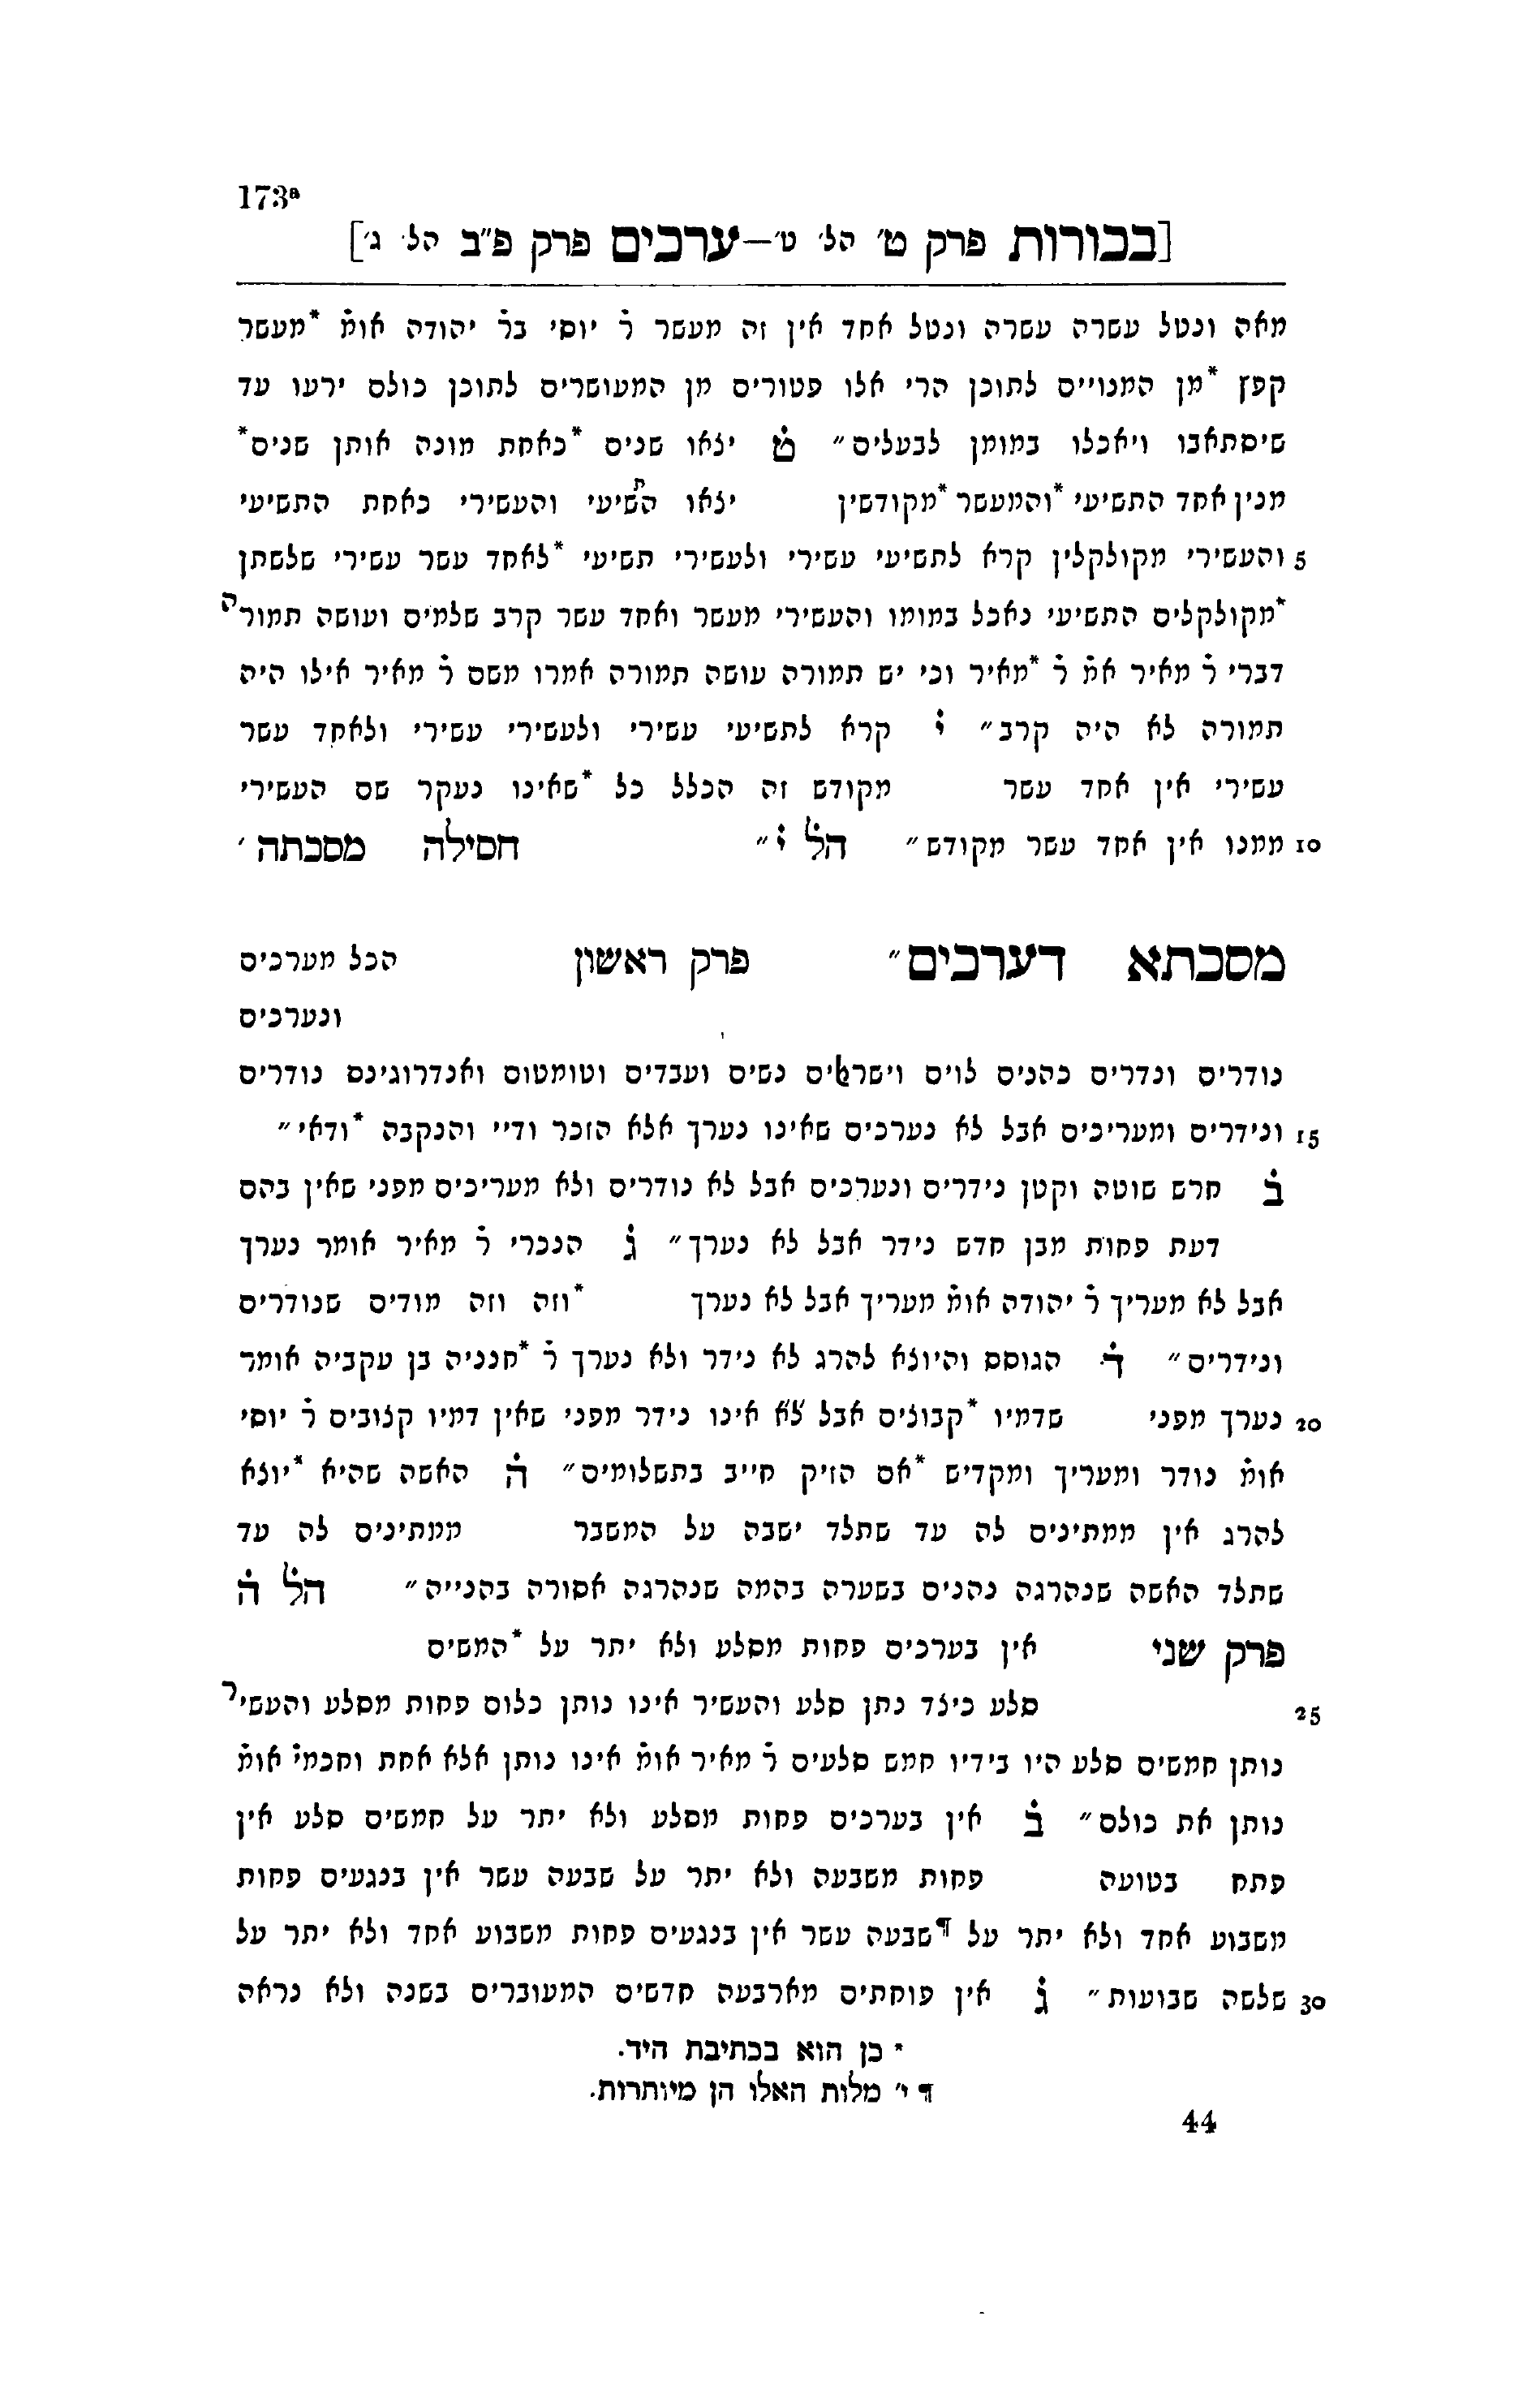 173ª
[בכורות פרק ט׳ הל׳ ט׳—ערכים פרק פ״ב הל׳ ג׳]
מאה ונטל עשרה עשרה ונטל אחד אין זה מעשר ר̇ יוסי בר̇ יהודה אומ̇ *מעשר
קפץ *מן המנויים לתוכן הרי אלו פטורים מן המעושרים לתוכן כולם ירעו עד
שיסתאבו ויאכלו במומן לבעלים״ ט̇ יצאו שנים *כאחת מונה אותן שנים*
מנין אחד התשיעי *והמעשר *מקודשין יצאו התשיעי והעשירי כאחת התשיעי
5 והעשירי מקולקלין קרא לתשיעי עשירי ולעשירי תשיעי *לאחד עשר עשירי שלשתן
*מקולקלים התשיעי נאכל במומו והעשירי מעשר ואחד עשר קרב שלמים ועושה תמורה
דברי ר̇ מאיר אמ̇ ר̇ *מאיר וכי יש תמורה עושה תמורה אמרו משם ר̇ מאיר אילו היה
תמורה לא היה קרב״ י̇ קרא לתשיעי עשירי ולעשירי עשירי ולאחד עשר
עשירי אין אחד עשר מקודש זה הכלל כל *שאינו נעקר שם העשירי
10 ממנו אין אחד עשר מקודש״ הל̇ י̇״ חסילה מסכתה׳
מסכתא דערכים״ פרק ראשון הכל מערכים
ונערכים
נודרים ונדרים כהנים לוים וישראלים נשים ועבדים וטומטום ואנדרוגינס נודרים
15 ונידרים ומעריכים אבל לא נערכים שאינו נערך אלא הזכר ודיי והנקבה *ודאי״
ב̇ חרש שוטה וקטן נידרים ונערכים אבל לא נודרים ולא מעריכים מפני שאין בהם
דעת פחות מבן חדש נידר אבל לא נערך״ ג̇ הנכרי ר̇ מאיר אומר נערך
אבל לא מעריך ר̇ יהודה אומ̇ מעריך אבל לא נערך *וזה וזה מודים שנודרים
ונידרים״ ד̇ הגוסס והיוצא להרג לא נידר ולא נערך ר̇ *חנניה בן עקביה אומר
20 נערך מפני שדמיו *קבוצים אבל לא אינו נידר מפני שאין דמיו קצובים ר̇ יוסי
אומ̇ נודר ומעריך ומקדיש *אם הזיק חייב בתשלומים״ ה̇ האשה שהיא *יוצא
להרג אין ממתינים לה עד שתלד ישבה על המשבר ממתינים לה עד
שתלד האשה שנהרגה נהנים בשערה בהמה שנהרגה אסורה בהנייה״ הל̇ ה̇
פרק שני אין בערכים פחות מסלע ולא יתר על *המשים
25 סלע כיצד נתן סלע והעשיר אינו נותן כלום פחות מסלע והעשיר
נותן חמשים סלע היו בידיו חמש סלעים ר̇ מאיר אומ̇ אינו נותן אלא אחת וחכמי̇ אומ̇
נותן את כולם״ ב̇ אין בערכים פחות מסלע ולא יתר על חמשים סלע אין
פתח בטועה פחות משבעה ולא יתר על שבעה עשר אין בנגעים פחות
משבוע אחד ולא יתר על ¶שבעה עשר אין בנגעים פחות משבוע אחד ולא יתר על
30 שלשה שבועות״ ג̇ אין פוחתים מארבעה חדשים המעוברים בשנה ולא נראה
* כן הוא בכתיבת היד.
¶ י׳ מלות האלו הן מיותרות.
44